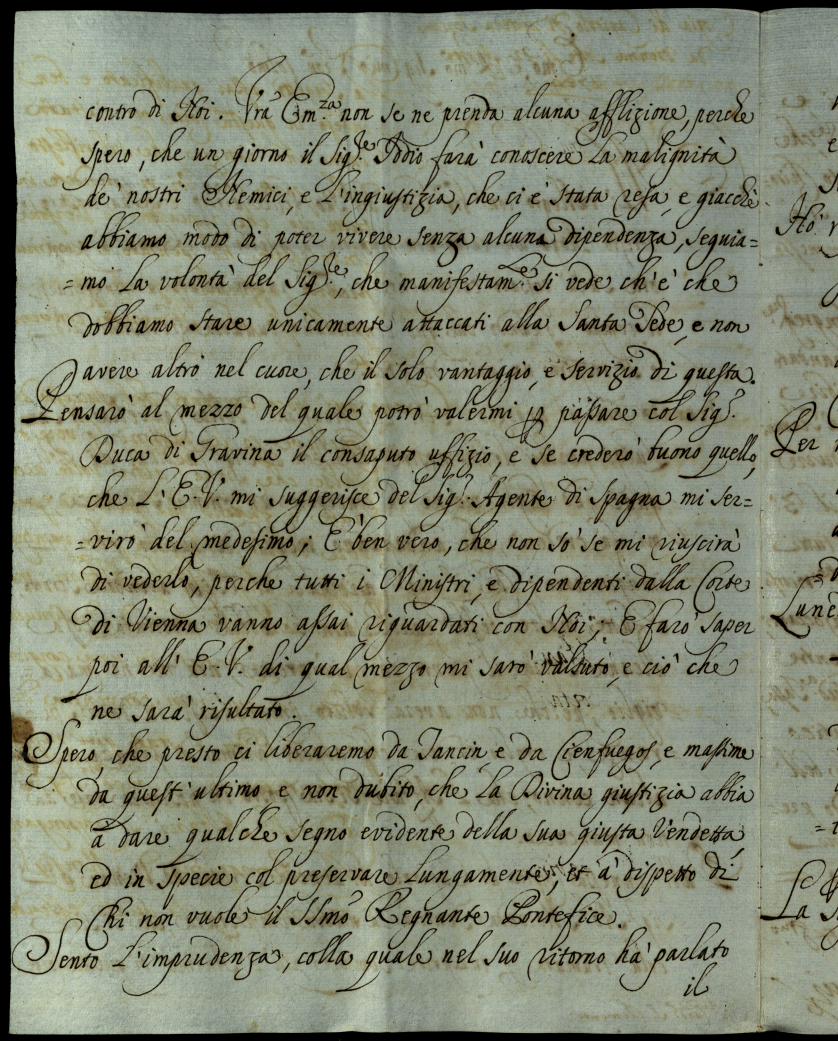 contro di Noi. Vrã Em.za non se ne prenda alcuna afflizione, perche
spero, che un giorno il Sig.re Iddio farà conoscere la malignità
de' nostri Nemici, e l'ingiustizia, che ci è stata resa, e giacchè
abbiamo modo di poter vivere senza alcuna dipendenza, seguia=
=mo la volontà del Sig.re, che manifestam.te si vede ch'è che
dobbiamo stare unicamente attaccati alla Santa Sede, e non
avere altro nel cuore, che il solo vantaggio, e servizio di questa.
Pensarò al mezzo del quale potrò valermi p passare col Sig.r
Duca di Gravina il consaputo uffizio, e se crederò buono quello,
che l'E.V. mi suggerisce del Sig.r Agente di Spagna mi ser=
=virò del medesimo; È ben vero, che non sò se mi riuscirà
di vederlo, perche tutti i Ministri, e dipendenti dalla Corte
di Vienna vanno assai riguardati con Noi; E farò saper
poi all'E.V. di qual mezzo mi sarò valsuto, e ciò che
ne sarà risultato.
Spero, che presto ci liberaremo da Tancin, e da Cienfuegos, e massime
da quest'ultimo e non dubito, che la Divina giustizia abbia
à dare qualche segno evidente della sua giusta Vendetta,
ed in specie col preservare lungamente, et à dispetto di
Chi non vuole il SSmo Regnante Pontefice.
Sento l'imprudenza, colla quale nel suo ritorno hà parlato
il
Hò
Per
Lune
La